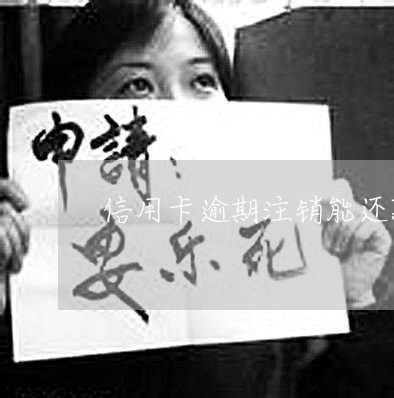 申請：
信用卡逾期注销能还
安乐死